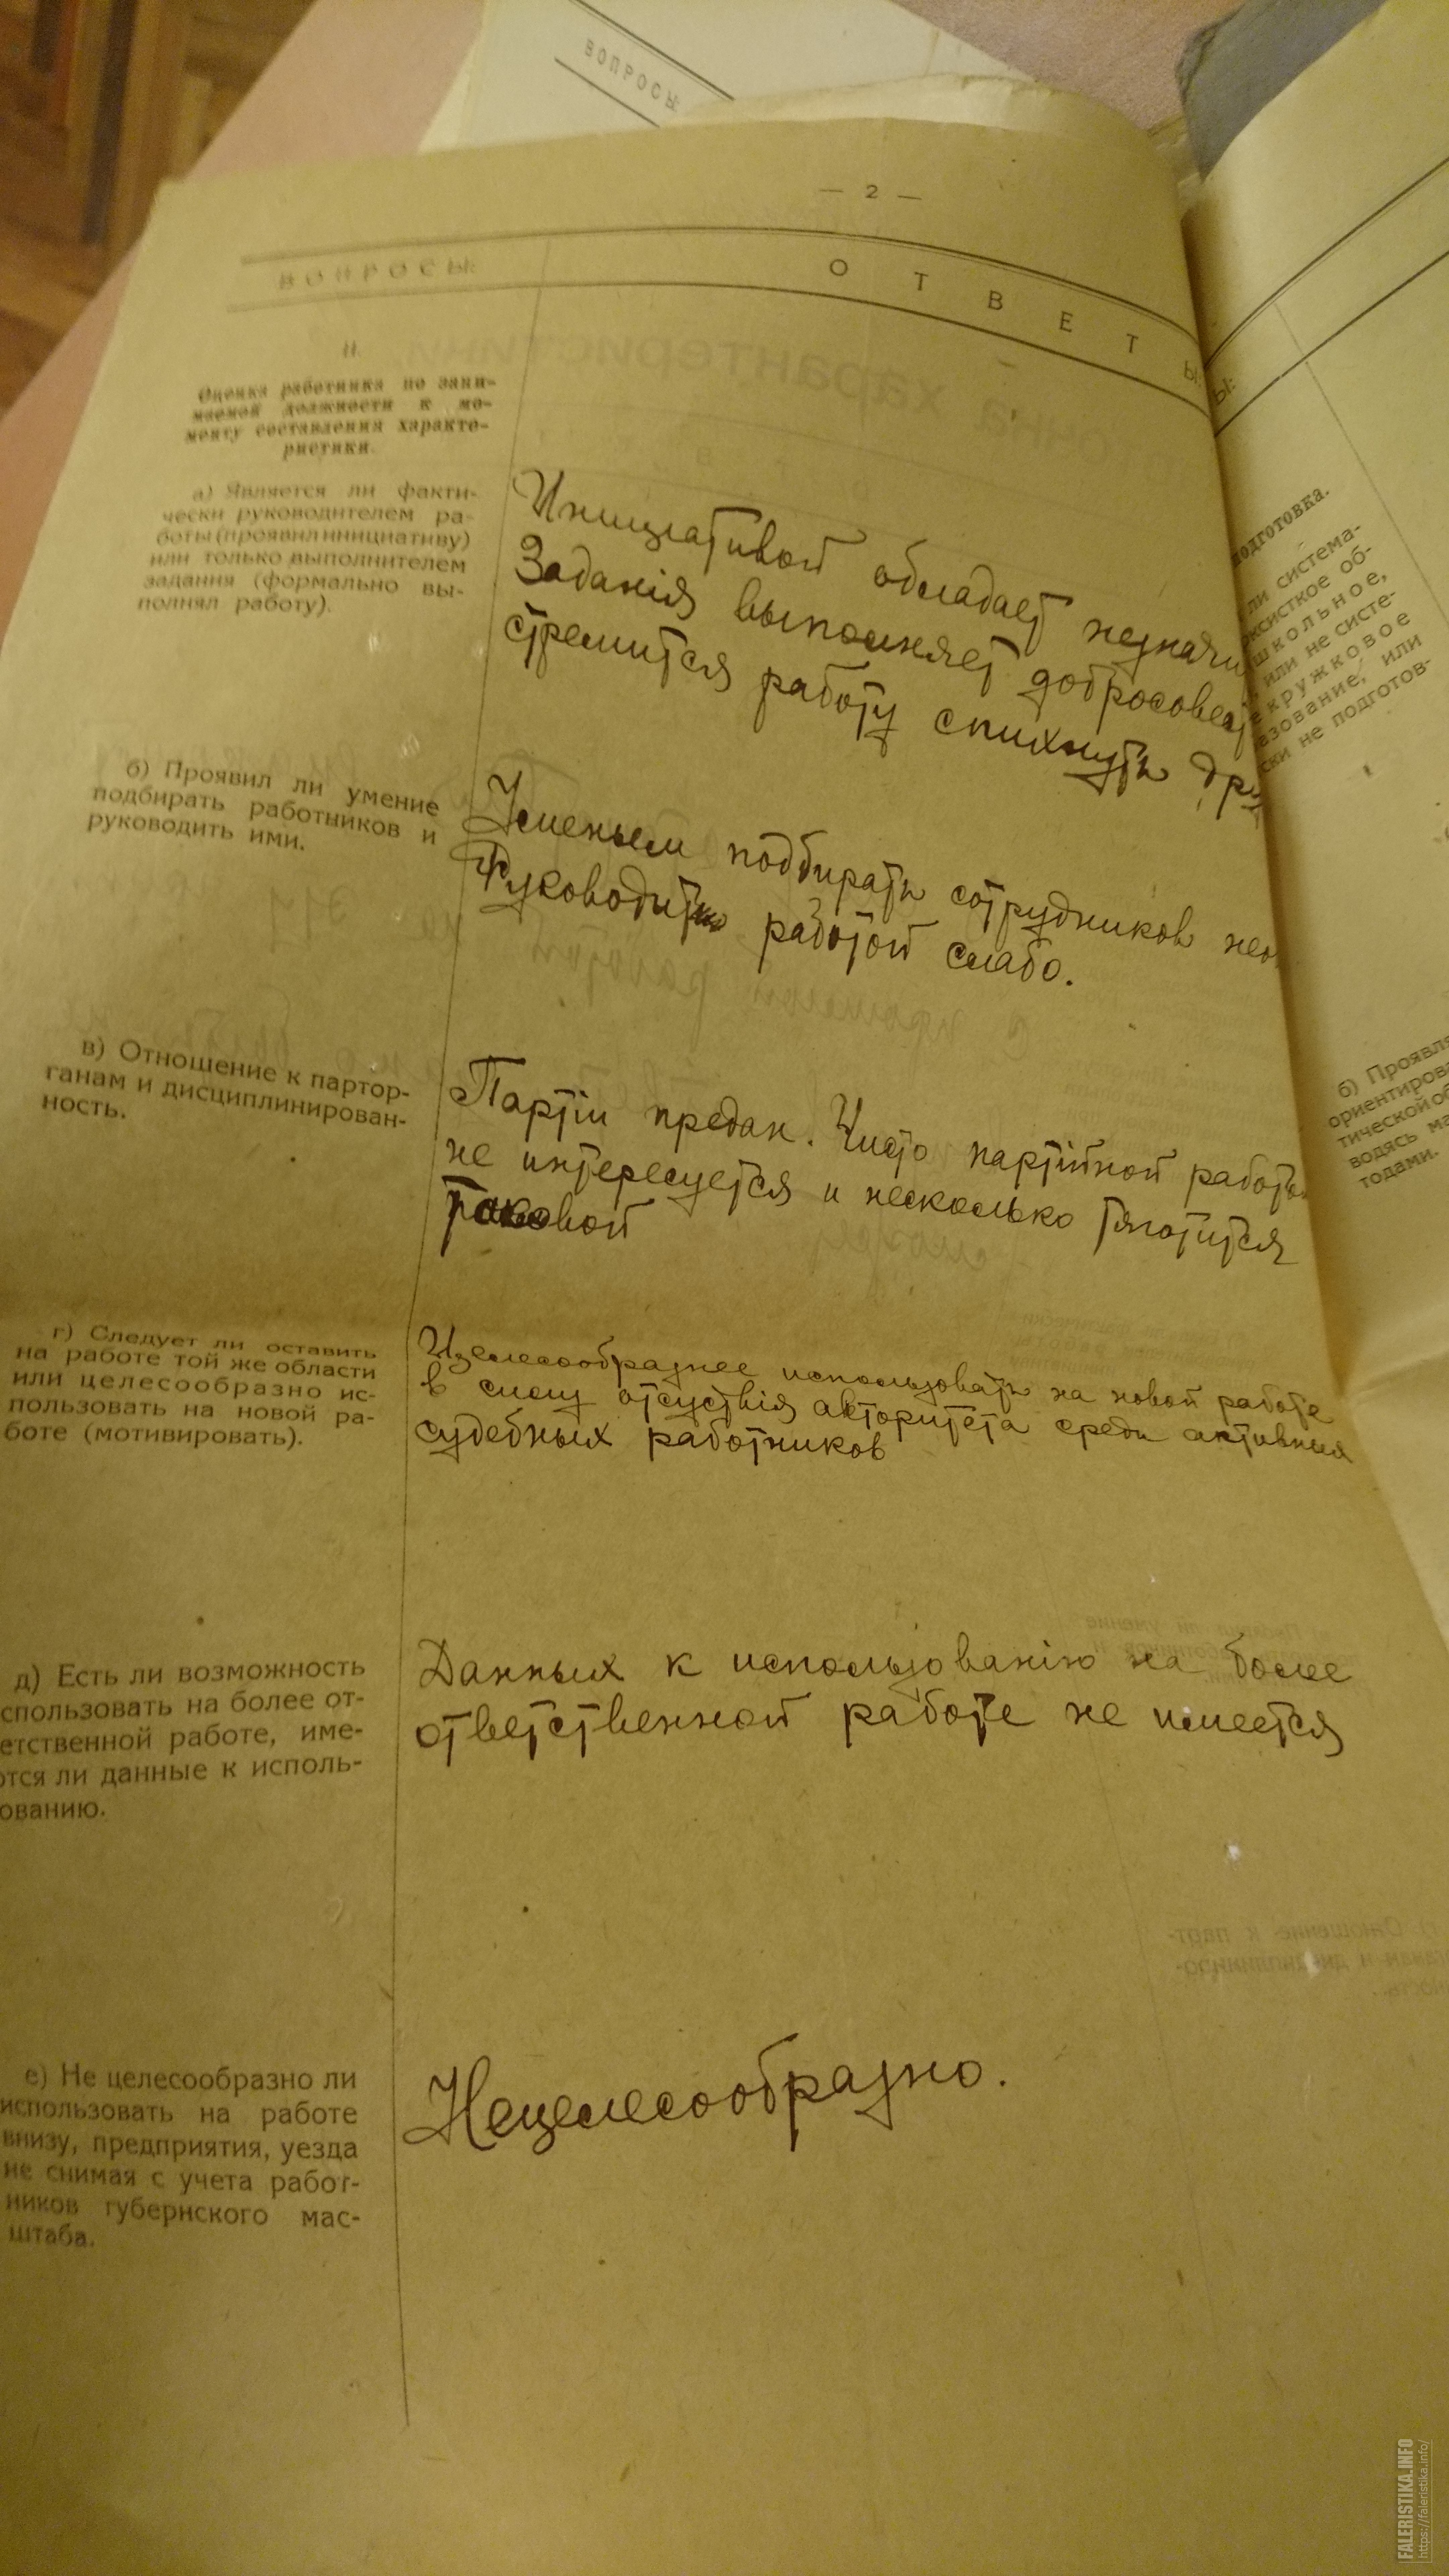 ВОПРОСЫ
— 2 —
ВОПРОСЫ:
ОТВЕТЫ:
II.
Оценка работника по зани-
маемой должности к мо-
менту составления характе-
ристики.
а) Является ли факти-
чески руководителем ра-
боты (проявил инициативу)
или только выполнителем
задания (формально вы-
полнял работу).
Инициативой обладает
Заданія выполняет
стремится работу спихнуть
б) Проявил ли умение
подбирать работников и
руководить ими.
Уменьем подбирать сотрудников
Руководит работой слабо.
в) Отношение к партор-
ганам и дисциплинирован-
ность.
Партіи предан. Чисто партійной
не интересуется и несколько тяготится
таковой
г) Следует ли оставить
на работе той же области
или целесообразно ис-
пользовать на новой ра-
боте (мотивировать).
использовать на новой работе
в силу отсуствія авторитета среди активных
судебных работников
д) Есть ли возможность
спользовать на более от-
етственной работе, име-
ются ли данные к исполь-
ованию.
Данных к использованію на более
ответственной работе не имеется
е) Не целесообразно ли
использовать на работе
внизу, предприятия, уезда
не снимая с учета работ-
ников губернского мас-
штаба.
Нецелесообразно.
ы:
подготовка.
ли система-
ксисткое об-
школьное,
или не систе-
кружковое
азование, или
ски не подготов-
б) Проявл
ориентиров
тической об
водясь м
тодами.
FALERISTIKA.INFO
https://faleristika.info/